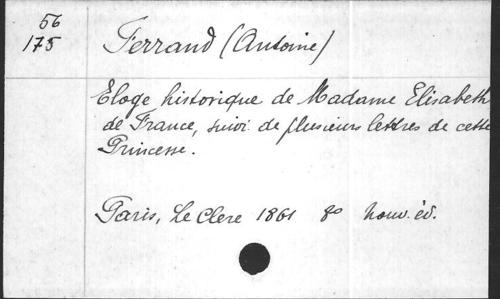 56
175
Ferrand (Antoine)
Eloge historique de Madame Elisabeth
de France, suivi de plusieurs lettres de cette
Princesse.
Paris, Le Clere 1861 8º nouv. éd.